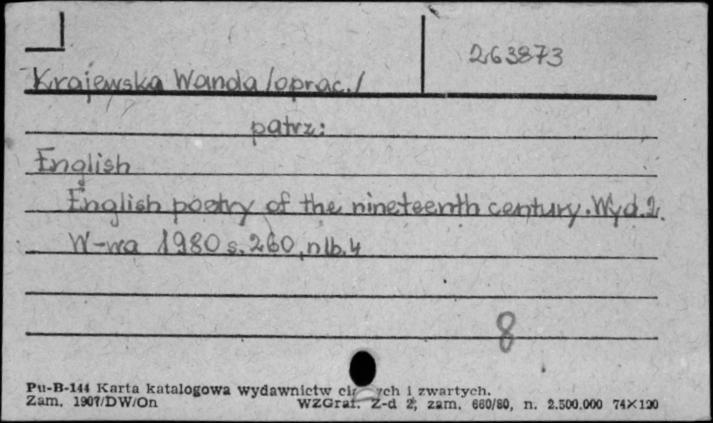 263873
Krajewska Wanda /oprac./
patrz:
English
English poetry of the nineteenth century. Wyd. 2.
W-wa 1980 s. 260, nlb. 4
8
Pu-B-144 Karta katalogowa wydawnictw i zwartych.
Zam. 1907/DW/On WZGraf. Z-d 2, zam. 660/80, n. 2.500.000 74×120